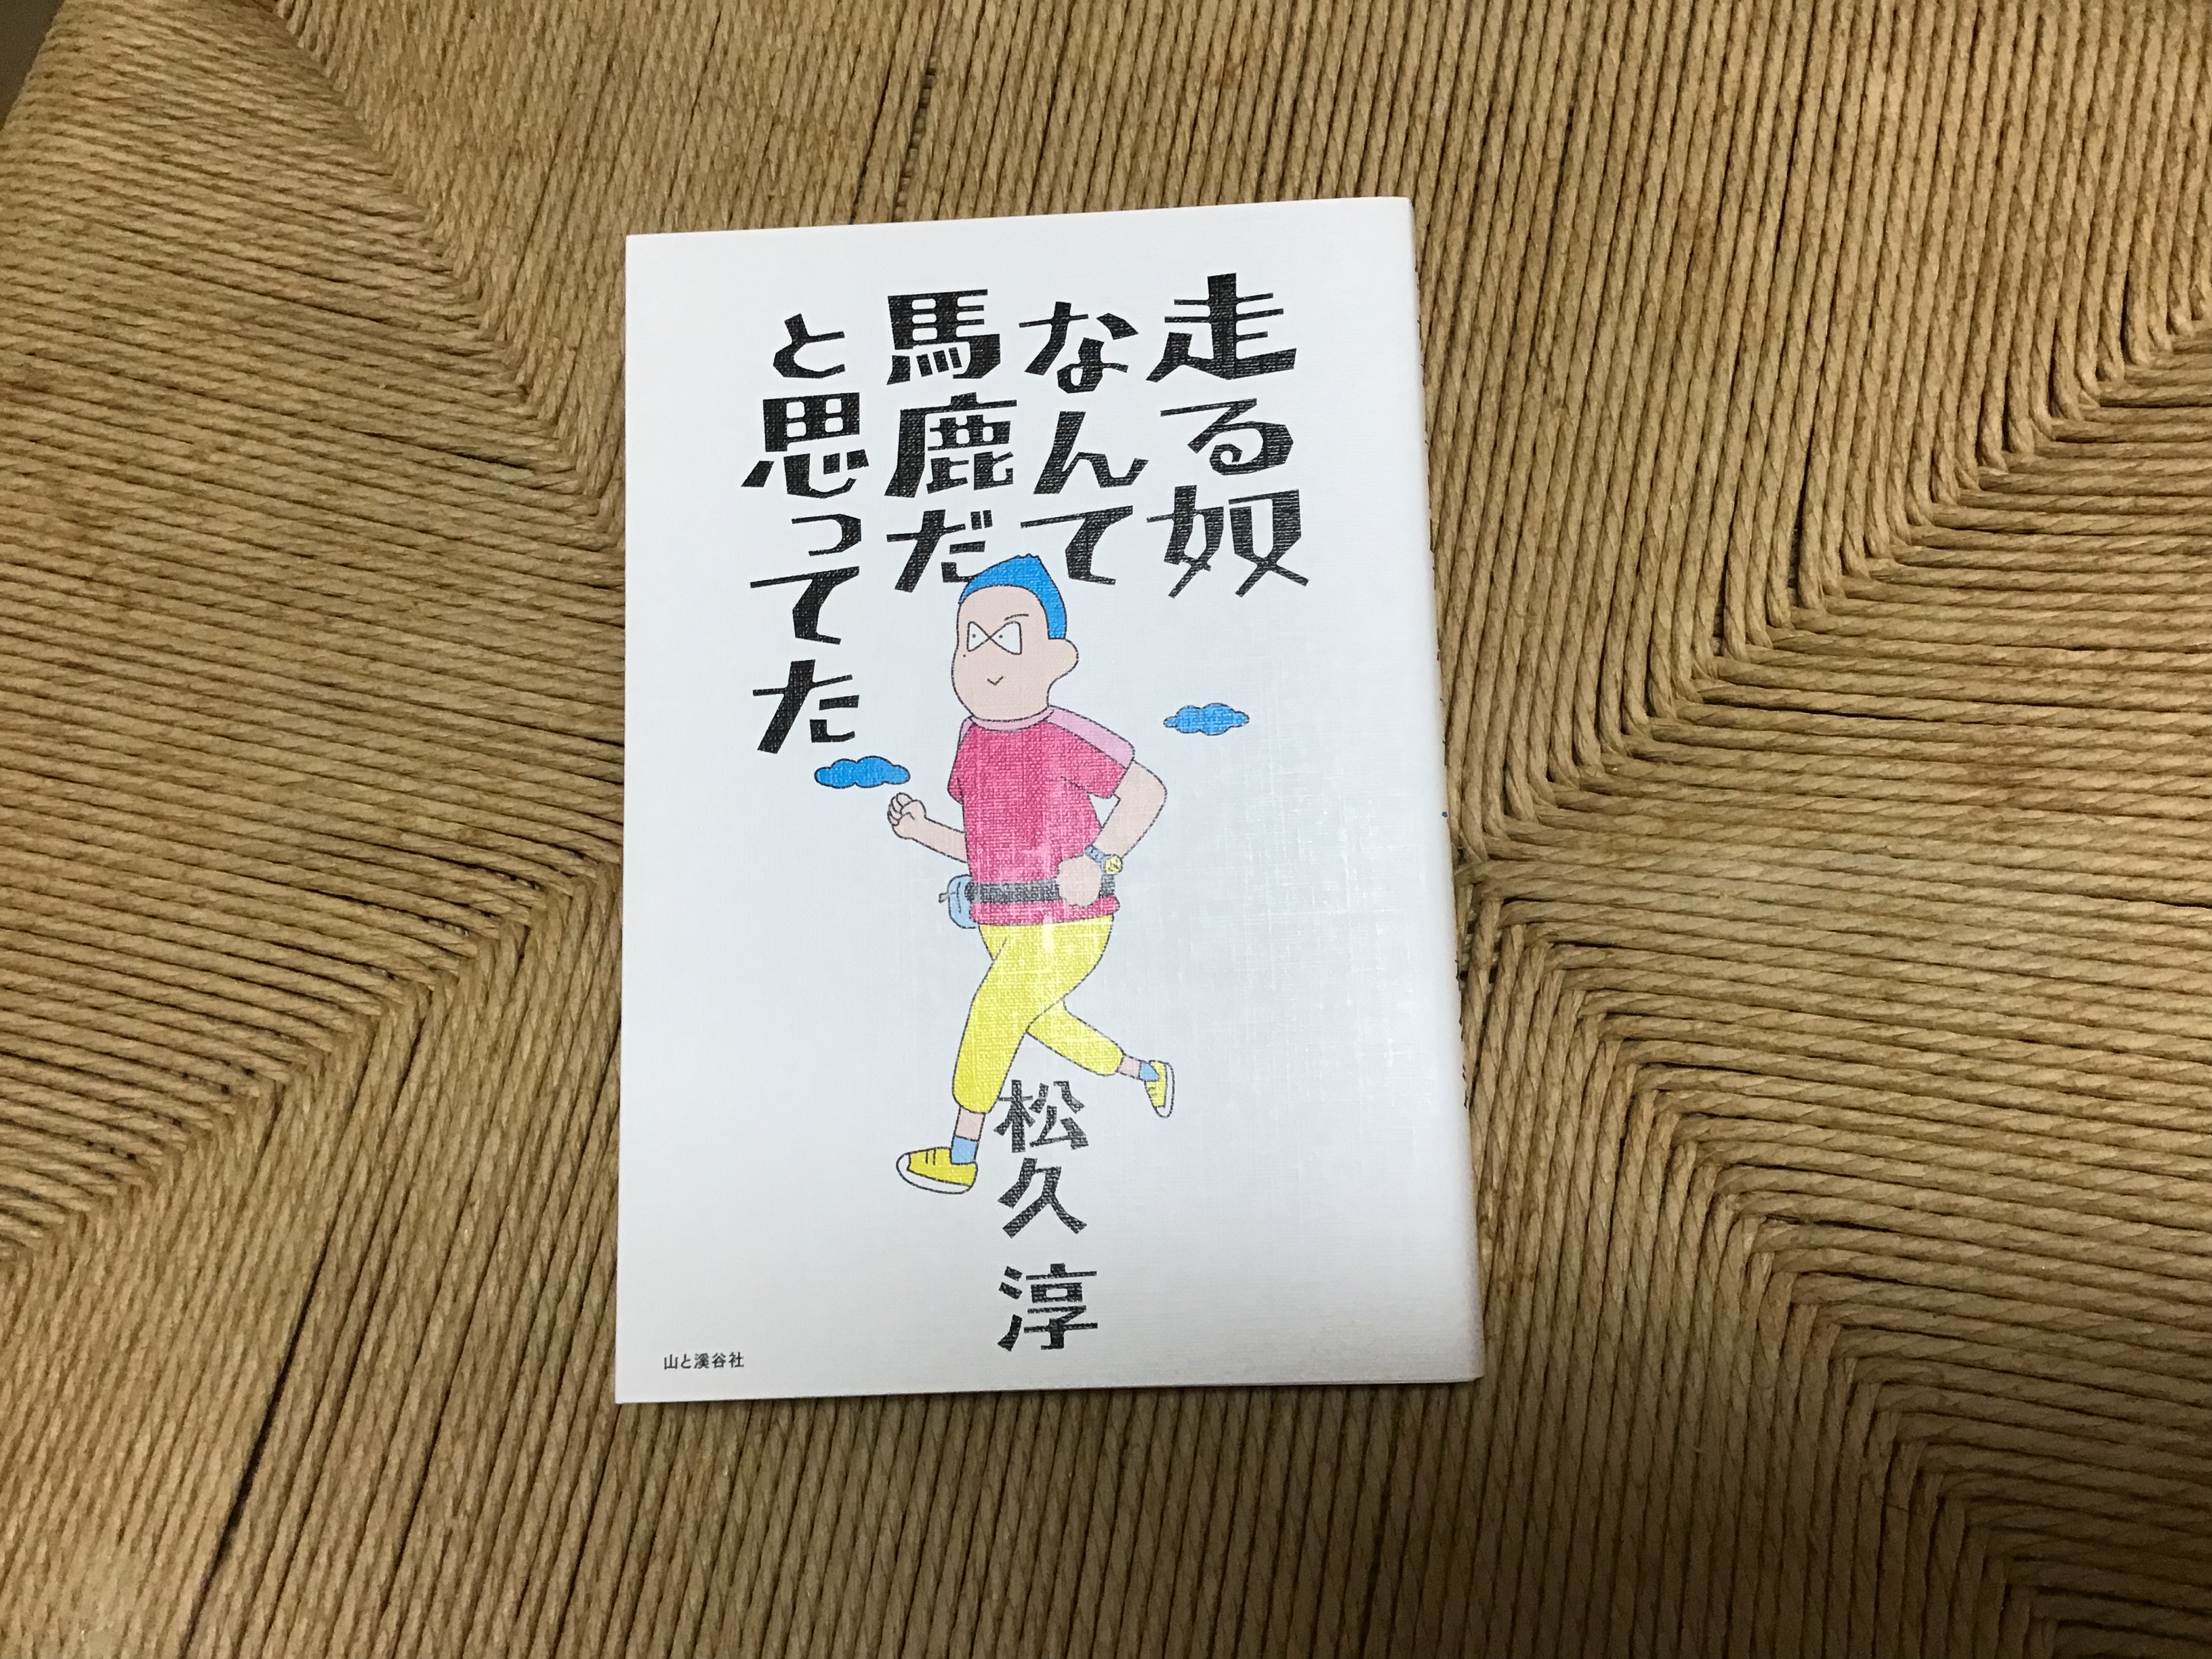 走る奴
なんて
馬鹿だ
と思ってた
松久 淳
山と溪谷社